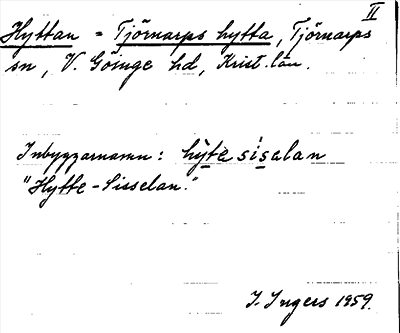 II
Hyttan = Tjörnarps hytta, Tjörnarps
sn, V. Göinge hd, Krist. län.
Inbyggarnamn: hỳte sìselan
"Hytte-Sisselan."
I. Ingers 1959.